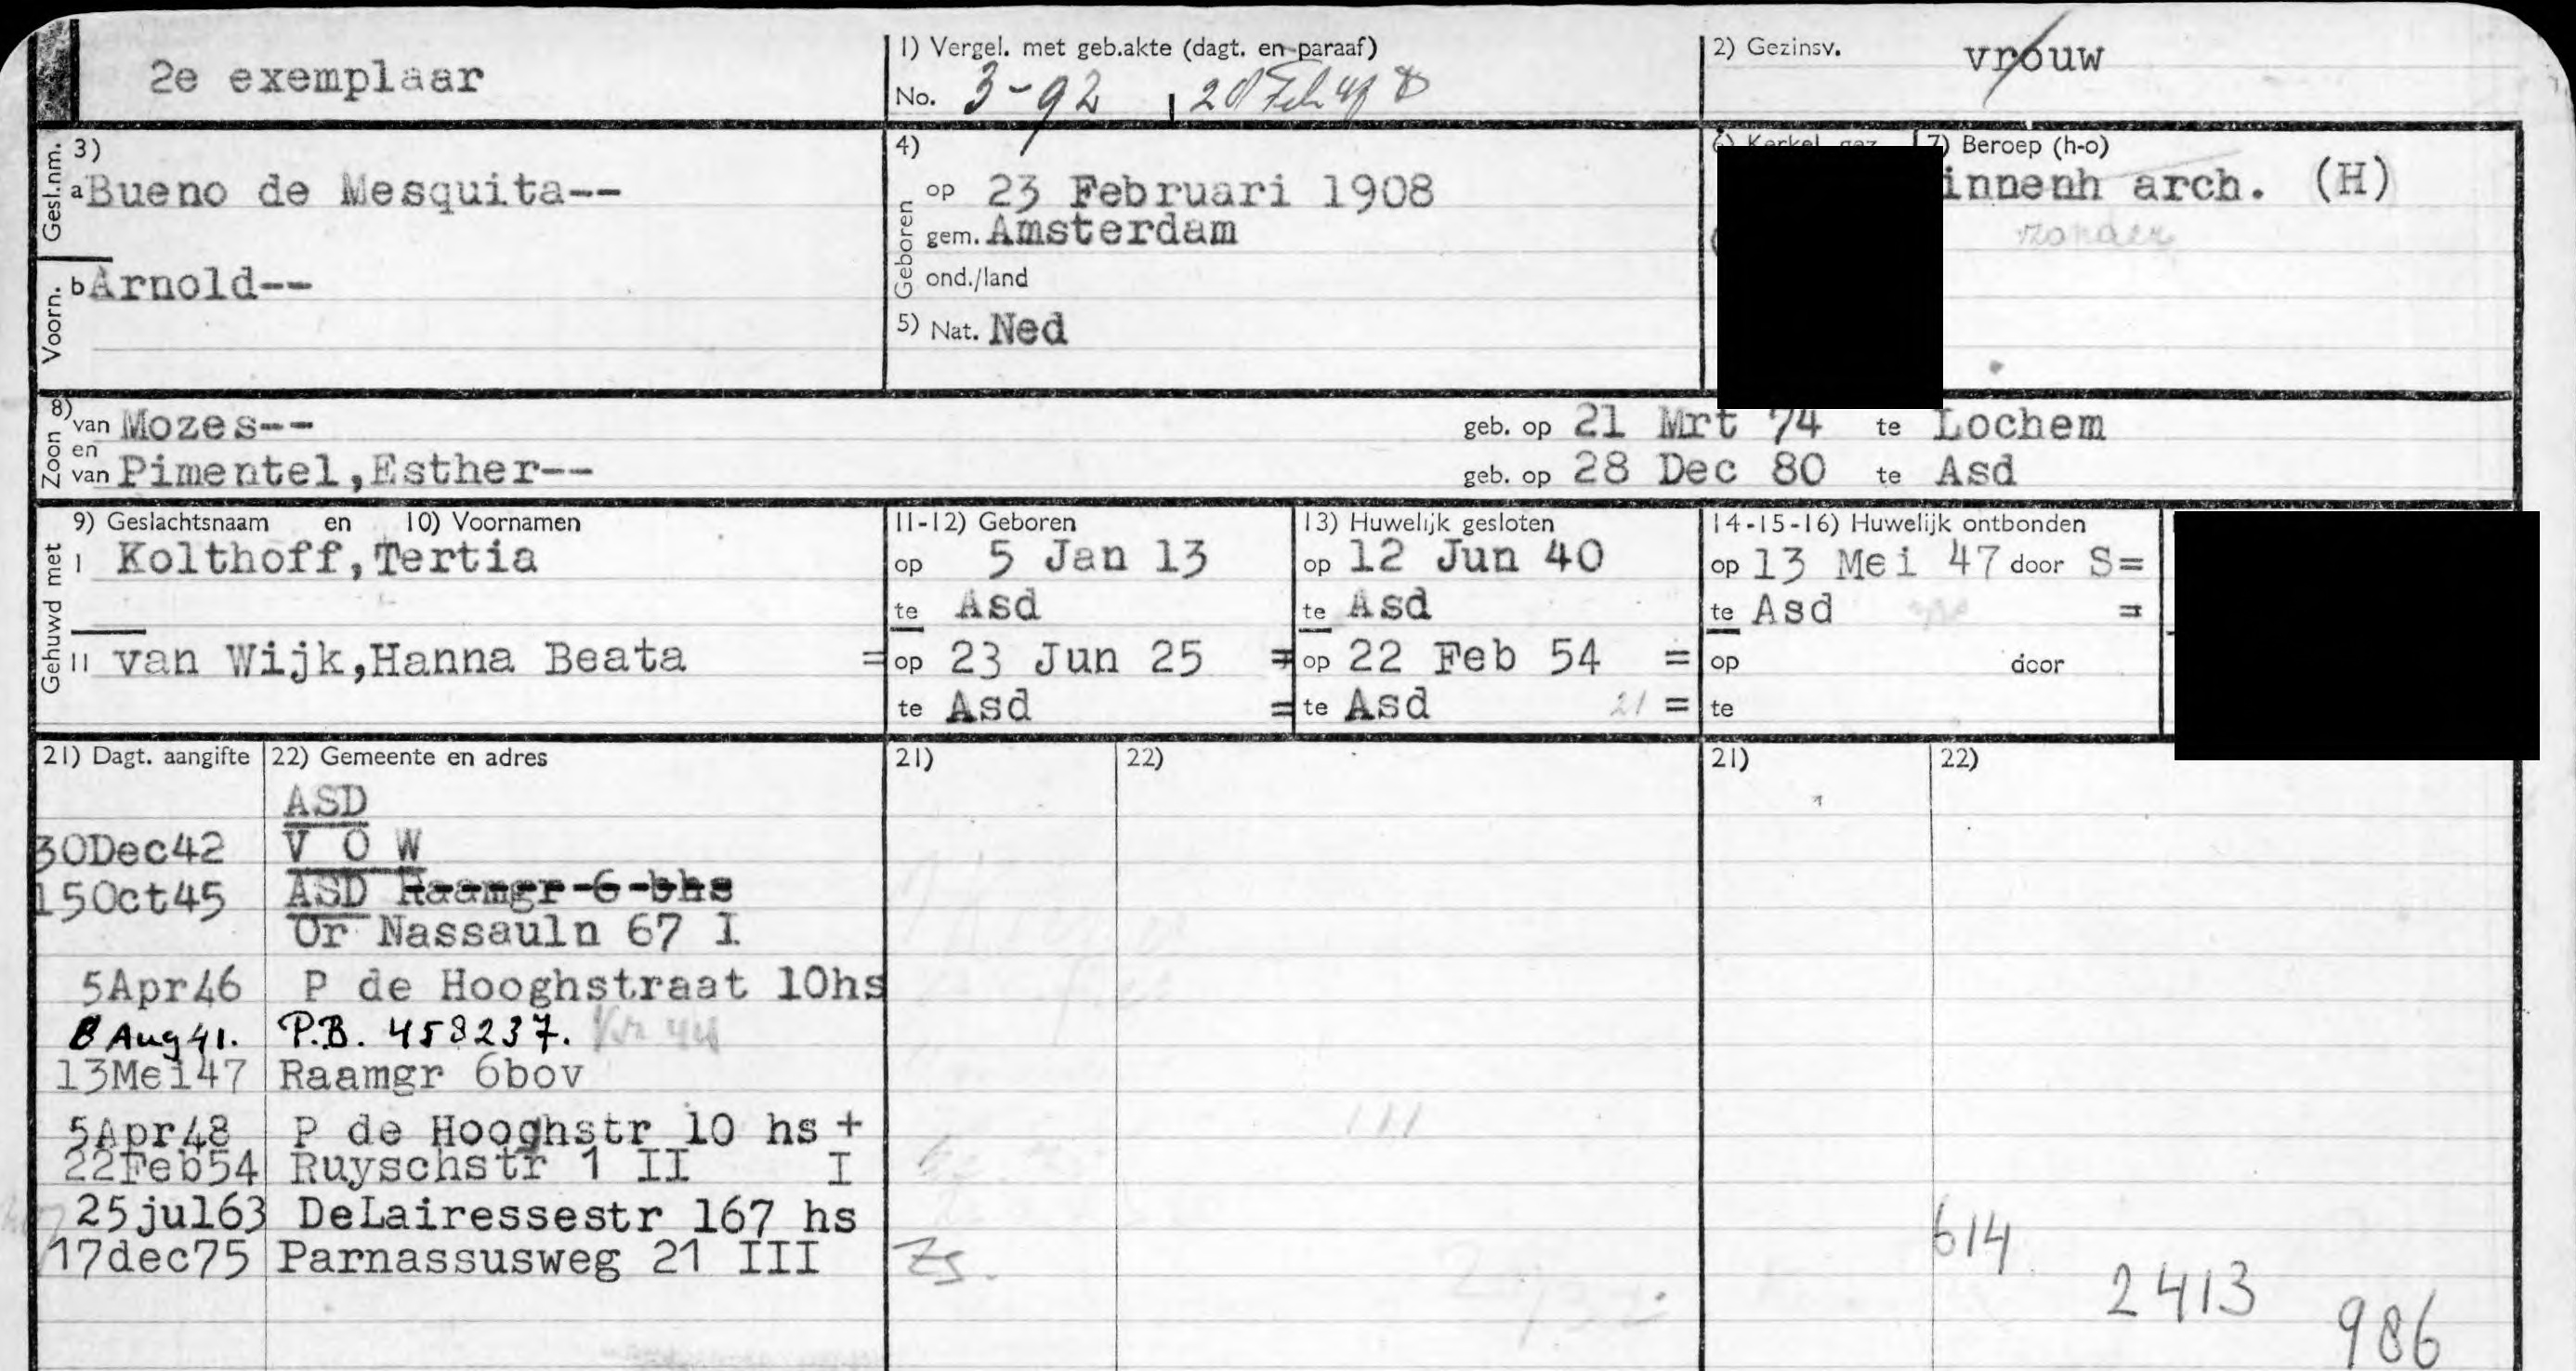 2e exemplaar
1) Vergel. met geb.akte (dagt. en paraaf)
No. 3-92
2) Gezinsv. vrouw
Gesl.nm. 3)
a Bueno de Mesquita--
Voorn. b Arnold--
4)
Geboren
op 23 Februari 1908
gem. Amsterdam
ond./land
5) Nat. Ned
7) Beroep (h-o)
innenh arch. (H)
8)
Zoon
van Mozes-- geb. op 21 Mrt 74 te Lochem
en
van Pimentel,Esther-- geb. op 28 Dec 80 te Asd
Gehuwd met
9) Geslachtsnaam en 10) Voornamen
I Kolthoff,Tertia
II van Wijk,Hanna Beata =
11-12) Geboren
op 5 Jan 13
te Asd
op 23 Jun 25 =
te Asd =
13) Huwelijk gesloten
op 12 Jun 40
te Asd
op 22 Feb 54 =
te Asd 21 =
14-15-16) Huwelijk ontbonden
op 13 Mei 47 door S=
te Asd =
op door
te
21) Dagt. aangifte 22) Gemeente en adres
ASD
30Dec42 V O W
15Oct45 ASD Raamgr 6 bhs
Or Nassauln 67 I
5Apr46 P de Hooghstraat 10hs
8 Aug 41. P.B. 458237.
13Mei47 Raamgr 6bov
5Apr48 P de Hooghstr 10 hs +
22Feb54 Ruyschstr 1 II I
25jul63 DeLairessestr 167 hs
17dec75 Parnassusweg 21 III
21) 22)
Zs.
21) 22)
614
2413
986